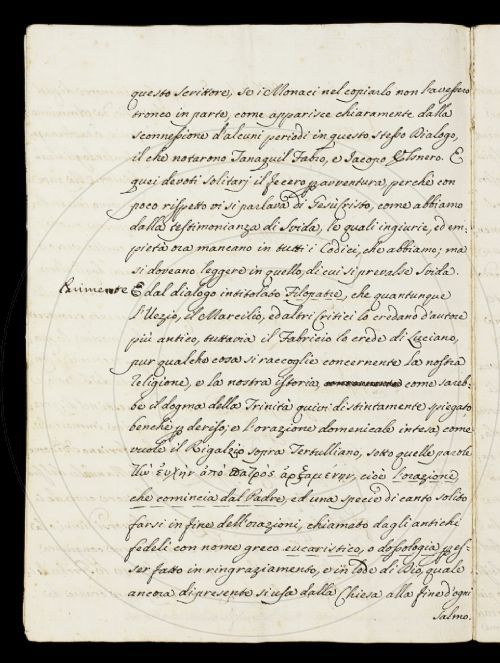 questo scrittore, se i Monaci nel copiarlo non l'avessero
tronco in parte, come apparisce chiaramente dalla
sconnessione d'alcuni periodi in questo stesso Dialogo,
il che notarono Tanaquil Fabro, e Jacopo Gesnero. E
quei devoti solitarj il fecero p avventura, perchè con
poco rispetto vi si parlava di Gesù Cristo, come abbiamo
dalla testimonianza di Svida, le quali ingiurie, ed em-
pietà ora mancano in tutti i Codici, che abbiamo; ma
si doveano leggere in quello, di cui si prevalse Svida.
E dal dialogo intitolato Filopatre, che quantunque
l'Uezio, il Marcilio, ed altri Critici lo credano d'autore
più antico, tuttavia il Fabricio lo crede di Luciano,
pur qualche cosa si raccoglie concernente la nostra
religione, e la nostra istoria, come sareb-
be il dogma della Trinità quivi distintamente spiegato
benchè p deriso; e l'orazione domenicale intesa, come
vuole il Rigalzio sopra Tertulliano, sotto quelle parole
τὴν ἐυχὴν ἀπὸ πατρὸς ἀρξαμενην, cioè l'orazione,
che comincia dal Padre, ed una specie di canto solito
farsi in fine dell'orazioni, chiamato dagli antichi
fedeli con nome greco eucaristico, o dossologia p es-
ser fatto in ringraziamento, e in lode di Dio, quale
ancora di presente si usa dalla Chiesa alla fine d'ogni
salmo.